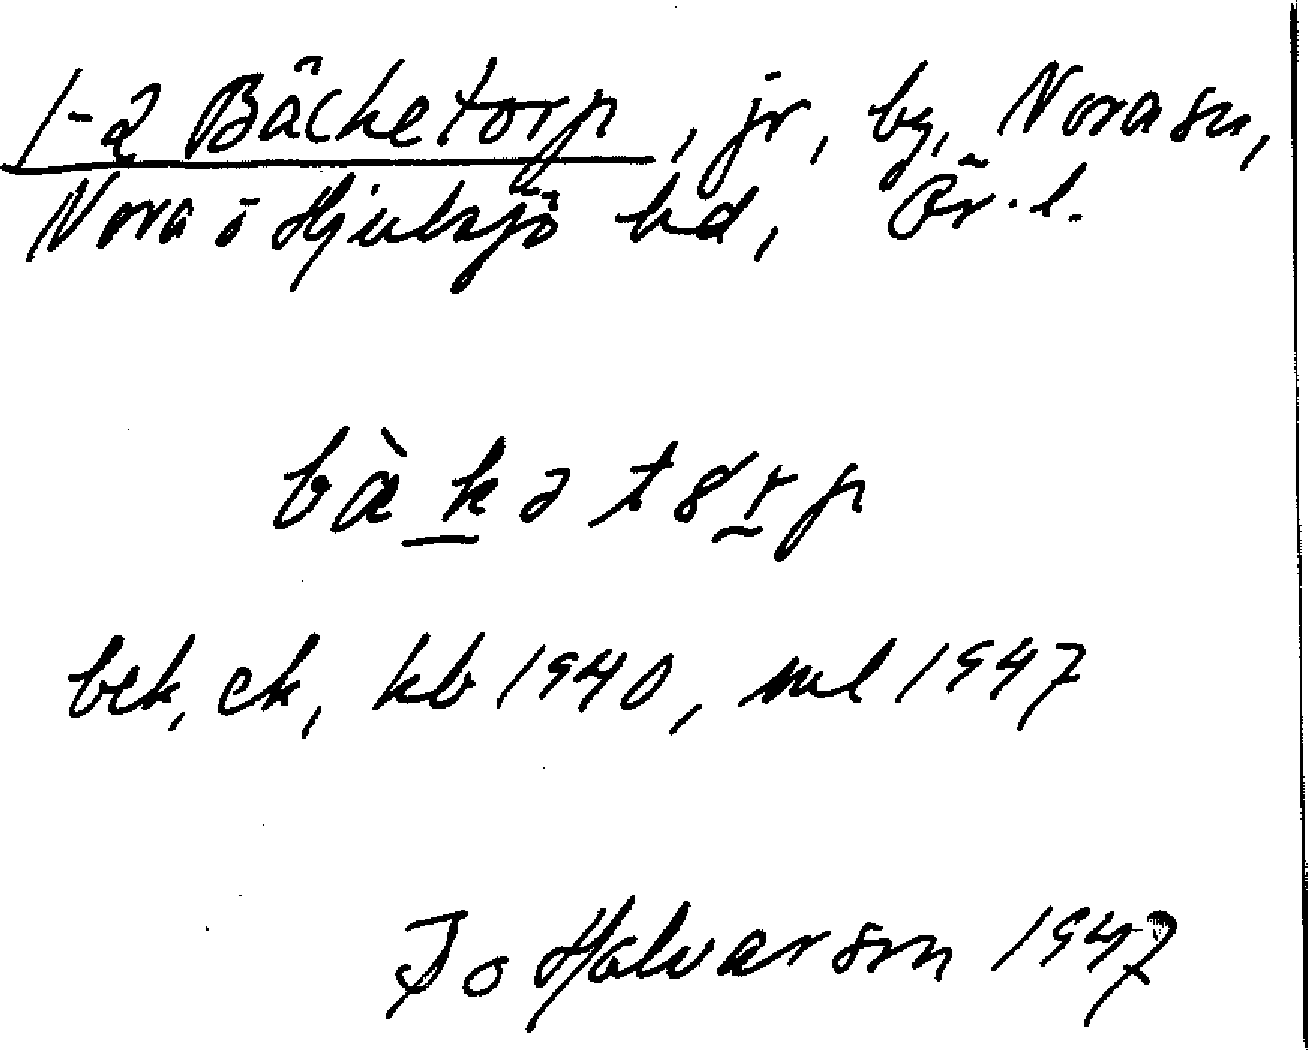 1-2 Bäcketorp, jr, by, Nora sn,
Nora o Hjulsjö hd, Ör. l.
bàkətɵrp
bek, ek, kb 1940, ml 1947
Jo Halvarson 1947